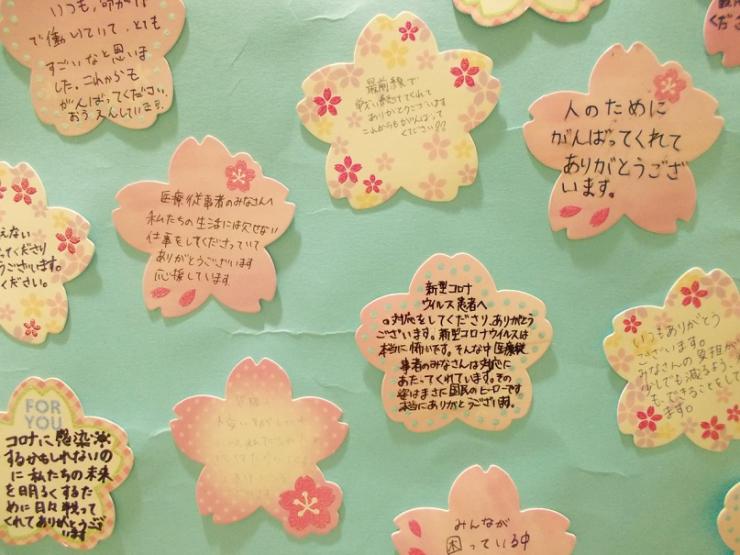 いつも、命がけ
で働いていて、とても
すごいなと思いま
した。これからも
がんばってください。
おうえんしています
最前線で
戦い続けてくれて
ありがとうございます
これからもがんばって
ください!!
人のために
がんばってくれて
ありがとうござ
います。
医療従事者のみなさんへ
私たちの生活には欠せない
仕事をしてくださっていて
ありがとうございます
応援しています
えない
ってくださり
うございます。
ください。
新型コロナ
ウイルス患者へ
の対応をしてくださり、ありがとう
ございます。新型コロナウイルスは
本当に怖いです。そんな中医療従
事者のみなさんは対応に
あたってくれています。その
姿はまさに国民のヒーローです
本当にありがとうございます。
いつもありがとう
ございます。
みなさんの負担が
少しでも減るよう、私
もできることをして
ます。
FOR
YOU
コロナに感染
するかもしれないの
に私たちの未来
を明るくするた
めに日々戦って
くれてありがとうござ
います
みんなが
困っている中